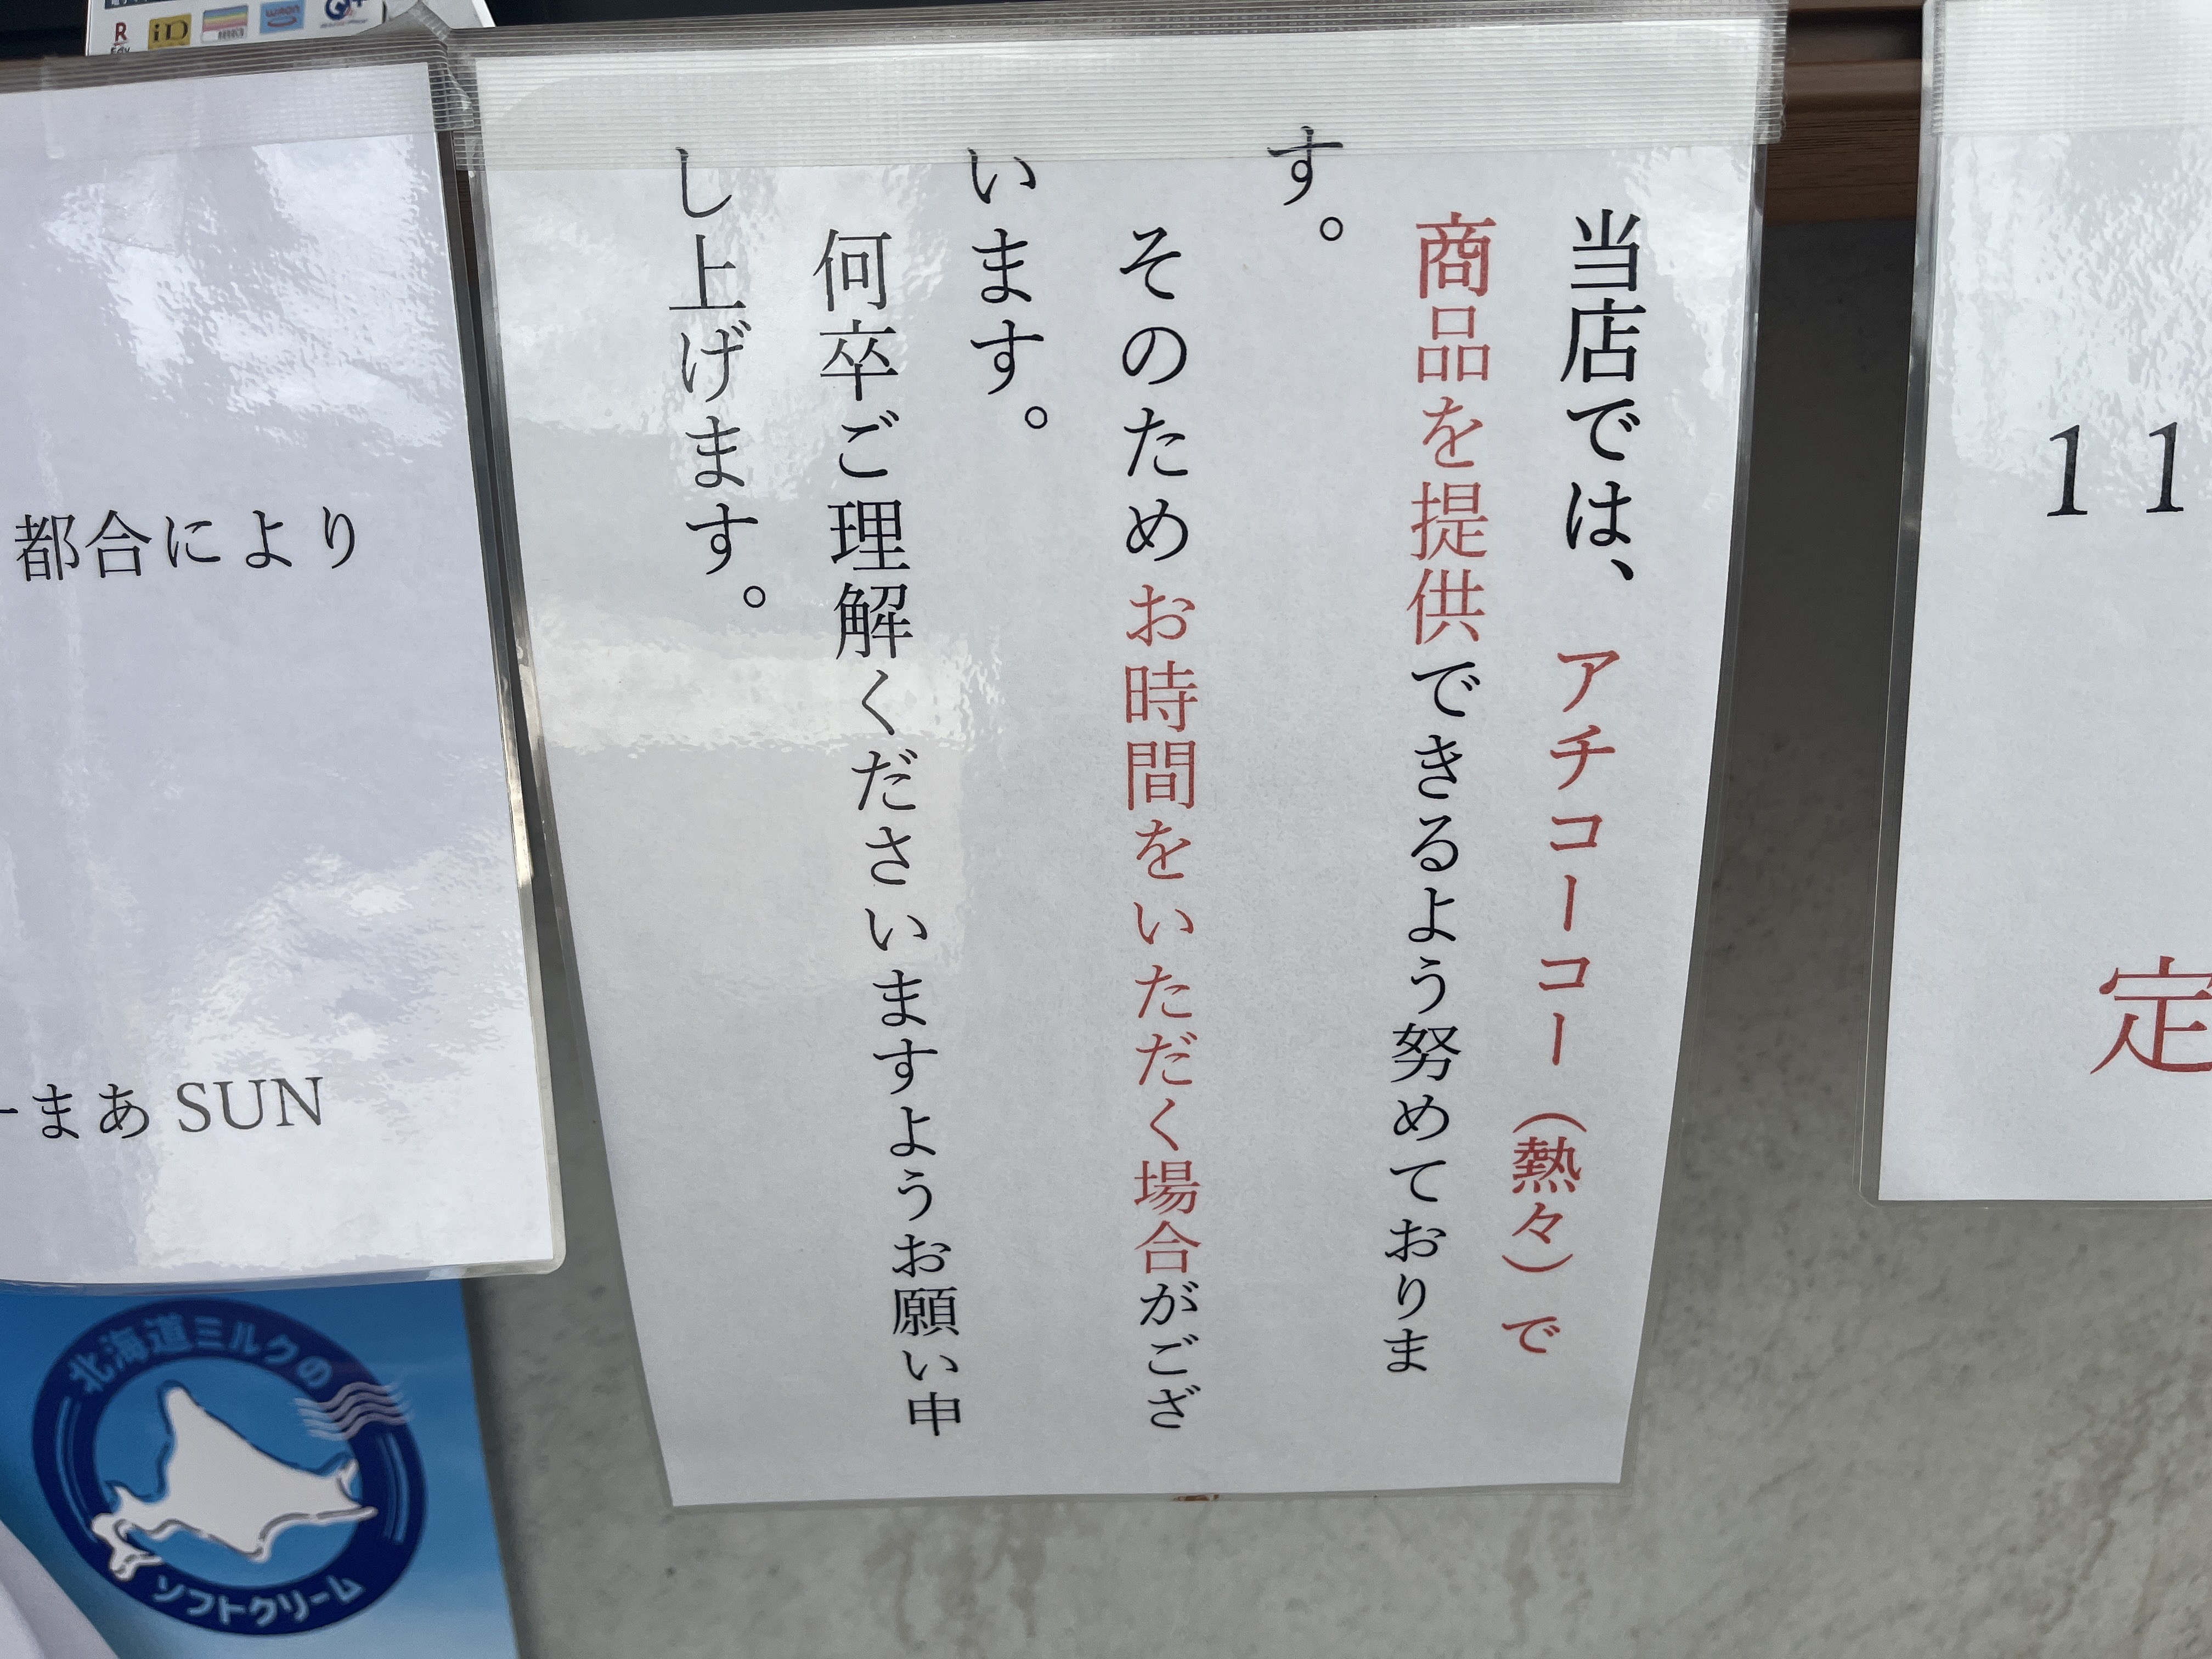 当店では、アチコーコー（熱々）で
商品を提供できるよう努めておりま
す。
そのためお時間をいただく場合がござ
います。
何卒ご理解くださいますようお願い申
し上げます。
都合により
ーまあ SUN
11
定
北海道ミルクの
ソフトクリーム
R
Edy
iD
nanaco
WAON